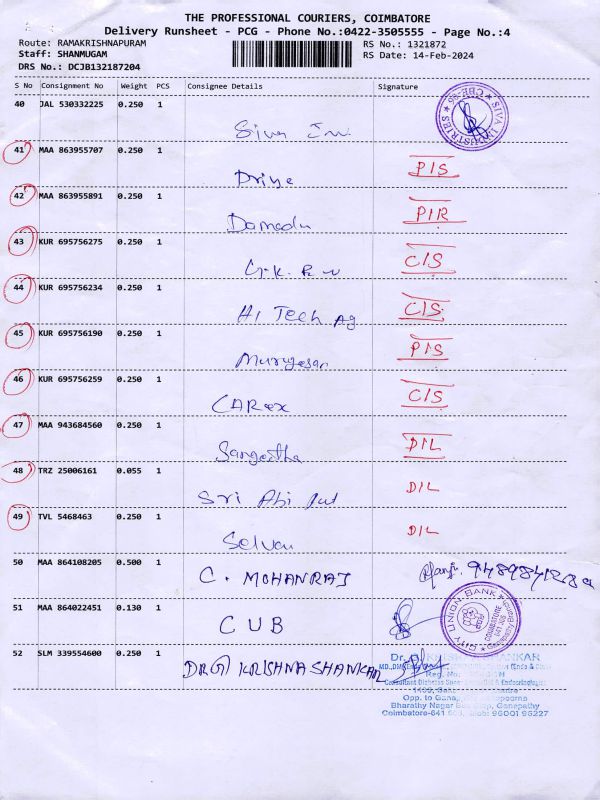 THE PROFESSIONAL COURIERS, COIMBATORE
Delivery Runsheet - PCG - Phone No.:0422-3505555 - Page No.:4
Route: RAMAKRISHNAPURAM RS No.: 1321872
Staff: SHANMUGAM RS Date: 14-Feb-2024
DRS No.: DCJB132187204
S No Consignment No Weight PCS Consignee Details Signature
40 JAL 530332225 0.250 1
Siva SIVA INDUSTRIES CBE-06
41 MAA 863955707 0.250 1
Priya P/S
42 MAA 863955891 0.250 1
Damodu P/R
43 KUR 695756275 0.250 1
G.K. C/S
44 KUR 695756234 0.250 1
Hi Tech Ag C/S
45 KUR 695756190 0.250 1
Murugesan P/S
46 KUR 695756259 0.250 1
CARex C/S
47 MAA 943684560 0.250 1
Sangeetha D/L
48 TRZ 25006161 0.055 1
Sri Abi D/L
49 TVL 5468463 0.250 1
Selvan D/L
50 MAA 864108205 0.500 1
C. MOHANRAJ
51 MAA 864022451 0.130 1
CUB CITY UNION BANK COIMBATORE
52 SLM 339554600 0.250 1
DR G KRISHNA SHANKAR
Reg. No.
Opp. to
Bharathy Nagar Bus Stop, Ganapathy
Coimbatore-641 Mob: 96001 95227